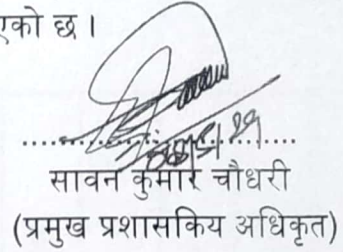 एको छ ।
सावन कुमार चौधरी
(प्रमुख प्रशासकिय अधिकृत)